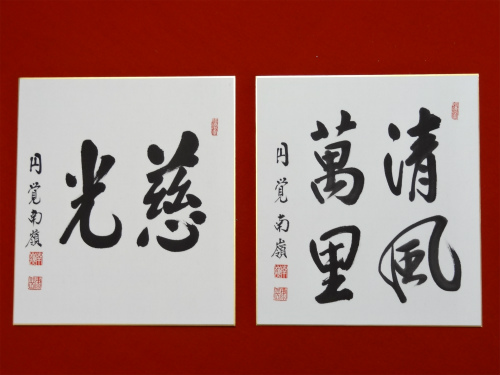 清風
萬里
円覚南嶺
慈光
円覚南嶺